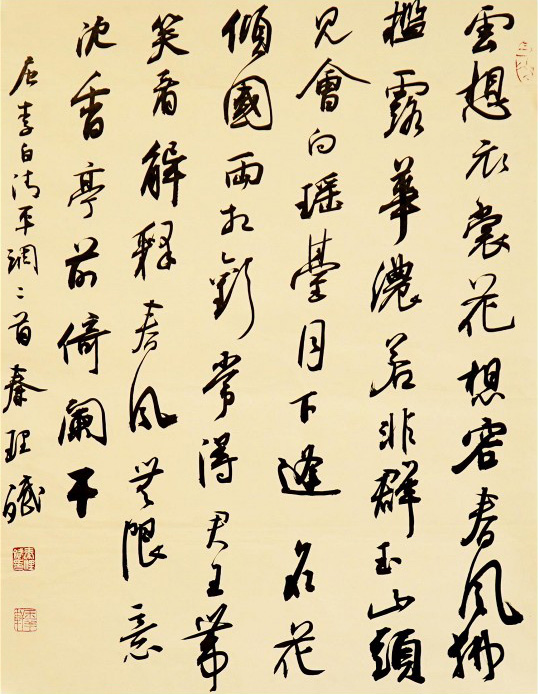 雲想衣裳花想容春風拂
檻露華濃若非群玉山頭
見會向瑶臺月下逢名花
傾國兩相歡常得君王帶
笑看解釋春風無限意
沈香亭前倚闌干
唐李白清平調二首秦理斌